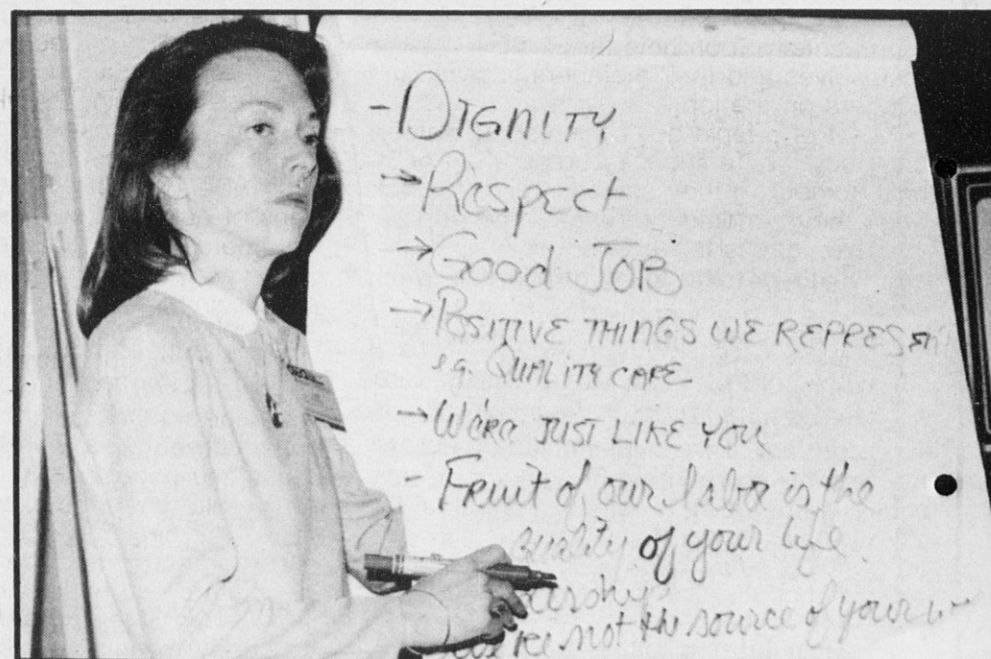 - DIGNITY
→ Respect
→ Good JOB
→ POSITIVE THINGS WE REPRESENT
e.g. QUALITY CARE
→ We're JUST LIKE YOU
- Fruit of our labor is the
quality of your life
not the source of your